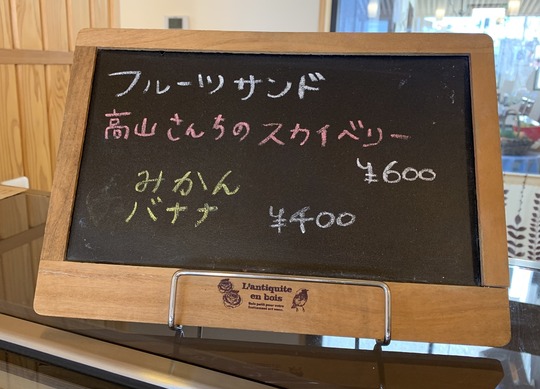 フルーツサンド
高山さんちのスカイベリー
¥600
みかん
バナナ ¥400
L'antiquite
en bois